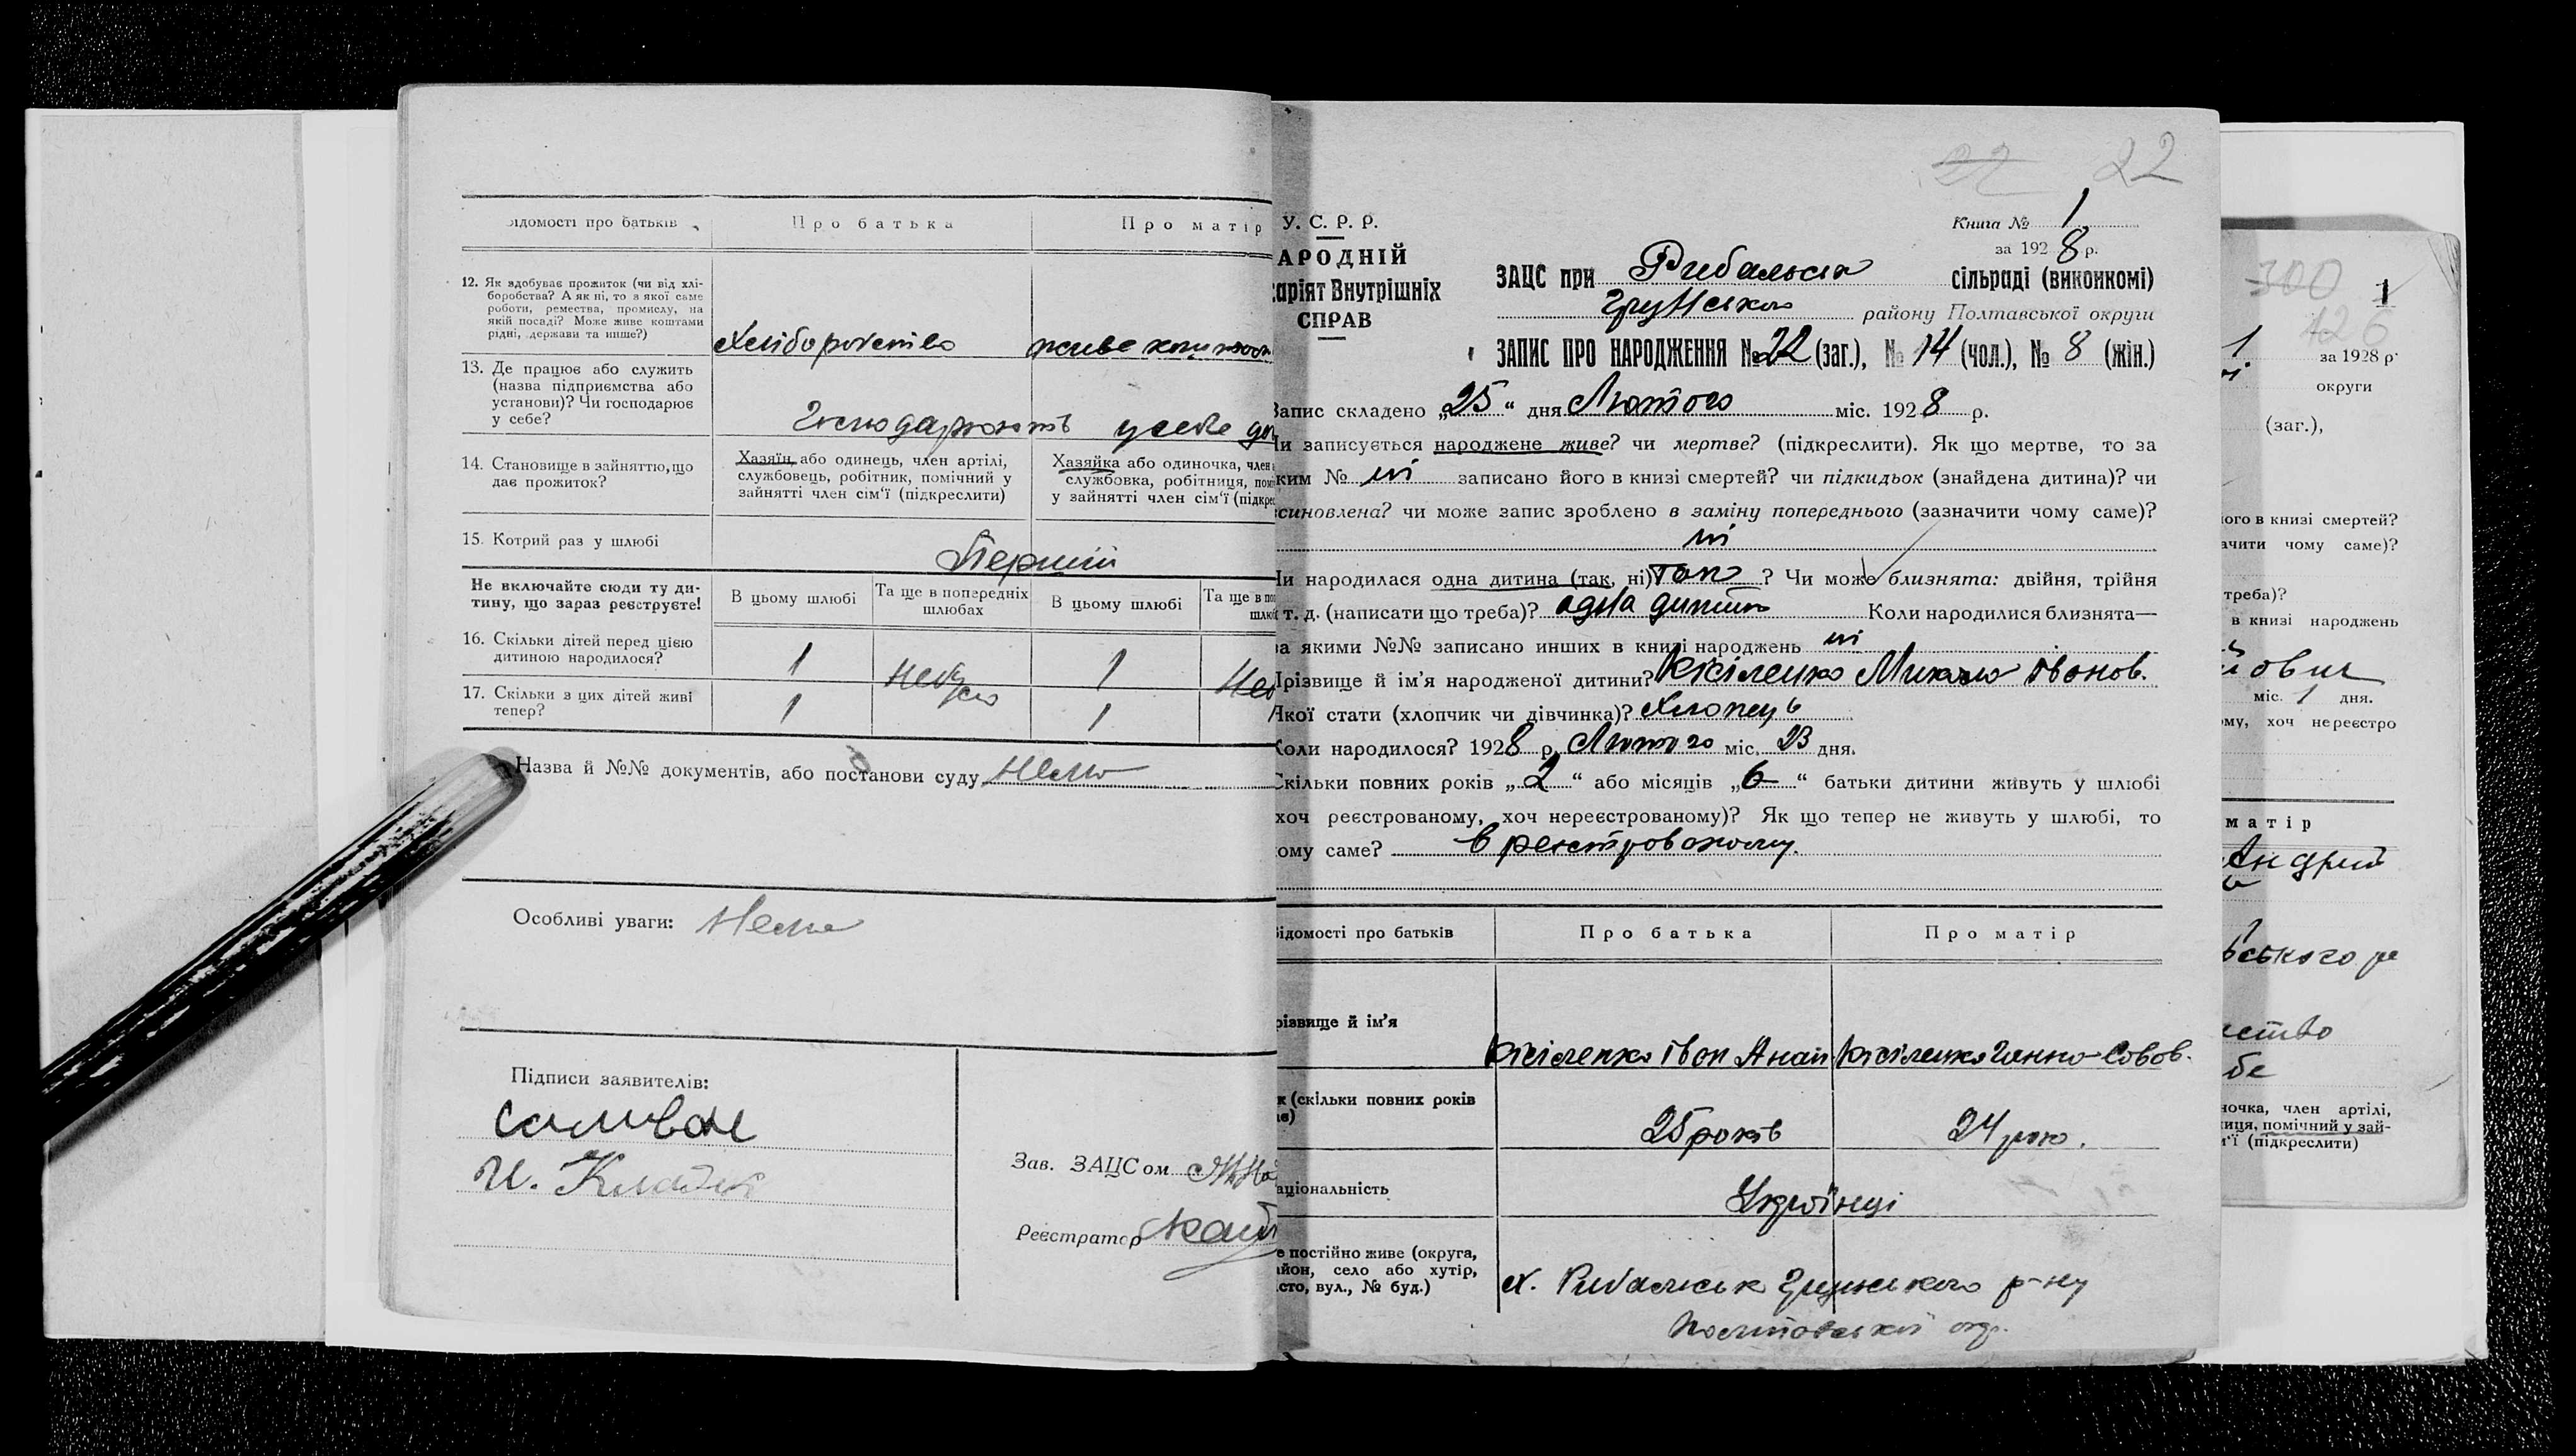 Відомості про батьків
Про батька
Про матір
12. Як здобуває прожиток (чи від хлі-
боробства? А як ні, то з якої саме
роботи, ремества, промислу, на
якій посаді? Може живе коштами
рідні, держави та инше?)
Хліборобство
живе
13. Де працює або служить
(назва підприємства або
установи)? Чи господарює
у себе?
Господарюють у себе
14. Становище в зайняттю, що
дає прожиток?
Хазяїн або одинець, член артілі,
службовець, робітник, помічний у
зайнятті член сім'ї (підкреслити)
Хазяйка або одиночка, член
службовка, робітниця, пом
у зайнятті член сім'ї (підкре
15. Котрий раз у шлюбі
Перший
Не включайте сюди ту ди-
тину, що зараз реєструєте!
В цьому шлюбі
Та ще в попередніх
шлюбах
В цьому шлюбі
Та ще в по
шлю
16. Скільки дітей перед цією
дитиною народилося?
1
1
17. Скільки з цих дітей живі
тепер?
1
1
Назва й №№ документів, або постанови суду Нема
Особливі уваги: Нема
Підписи заявителів:
И.
Зав. ЗАЦСом
Реєстратор
22 22
У. С. Р. Р.
АРОДНІЙ
аріят Внутрішніх
СПРАВ
Книга № 1
за 1928 р.
ЗАЦС при Рибальськ сільраді (виконкомі)
Грунського району Полтавської округи
ЗАПИС ПРО НАРОДЖЕННЯ № 22 (заг.), № 14 (чол.), № 8 (жін.)
Запис складено „25“ дня Лютого міс. 1928 р.
Чи записується народжене живе? чи мертве? (підкреслити). Як що мертве, то за
ким № ні записано його в книзі смертей? чи підкидьок (знайдена дитина)? чи
синовлена? чи може запис зроблено в заміну попереднього (зазначити чому саме)?
ні
Чи народилася одна дитина (так, ні) так ? Чи може близнята: двійня, трійня
і т. д. (написати що треба)? одна дитина Коли народилися близнята—
за якими №№ записано инших в книзі народжень ні
Прізвище й ім'я народженої дитини? Кісіленко Микола Іванов.
Якої стати (хлопчик чи дівчинка)? Хлопець
Коли народилося? 1928 р. Лютого міс. 23 дня.
Скільки повних років „2“ або місяців „6“ батьки дитини живуть у шлюбі
хоч реєстрованому, хоч нереєстрованому)? Як що тепер не живуть у шлюбі, то
ому саме? в реєстрованому.
Відомості про батьків
Про батька
Про матір
різвище й ім'я
Кісіленко Іван Анан.
Кісіленко Ганна Савов.
к (скільки повних років
25 років
24 рок.
аціональність
Українці
е постійно живе (округа,
айон, село або хутір,
сто, вул., № буд.)
х. Рибальськ Грунського р-ну
Полтавської окр.
300
1
426
1 за 1928 р.
округи
(заг.),
ого в книзі смертей?
ачити чому саме)?
треба)?
в книзі народжень
йович
міс. 1 дня.
ому, хоч нереєстро
матір
Андрій
ського р
ство
бе
ночка, член артілі,
ниця, помічний у зай-
м'ї (підкреслити)